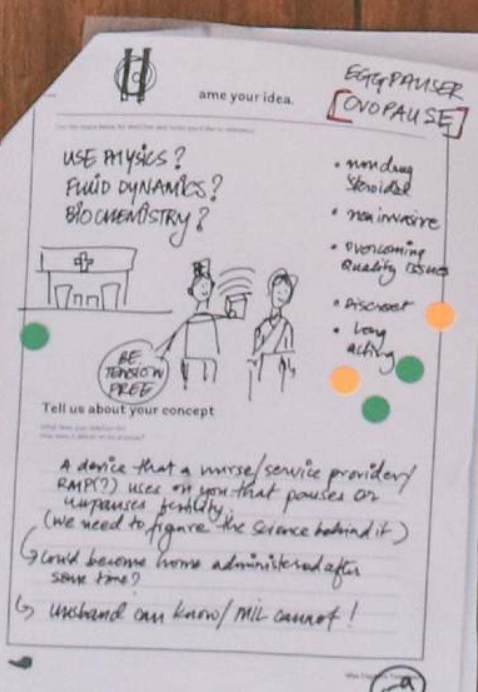 ame your idea.
EGGPAUSER
[OVOPAUSE]
USE PHYSICS?
FLUID DYNAMICS?
BIOCHEMISTRY?
• non drug
steroidal
• non invasive
• overcoming
quality issues
• Discreet
• Long
acting
BE
TENSION
FREE
Tell us about your concept
A device that a nurse/service provider/
RMP(?) uses on you that pauses or
unpauses fertility.
(we need to figure the science behind it)
↳ Could become home administered after
some time?
↳ husband can know/ MIL cannot!